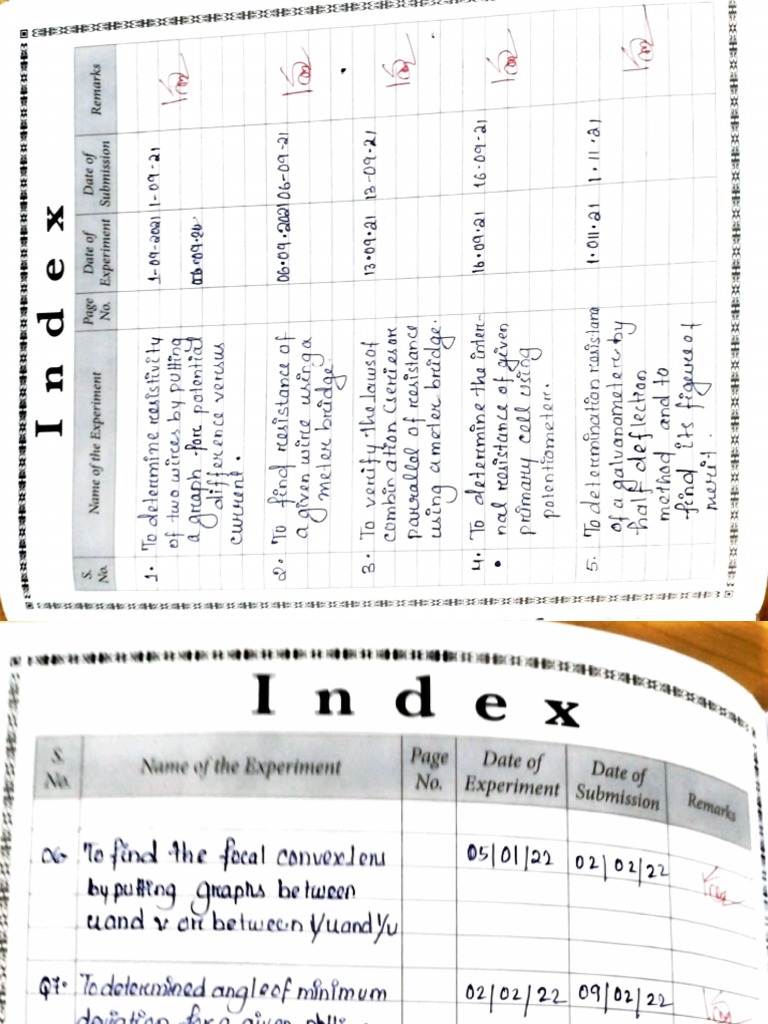 Index
S. No.
Name of the Experiment
Page No.
Date of Experiment
Date of Submission
Remarks
1. To determine resistivity 1-09-2021 1-09-21
of two wires by putting
a graph for potential
difference versus
current.
2. To find resistance of 06.09.2021 06-09-21
a given wire using a
meter bridge.
3. To verify the laws of 13.09.21 13-09-21
combination (series or
parallal of resistance
using a meter bridge.
4. To determine the inter- 16.09.21 16-09-21
nal resistance of given
primary cell using
potentiometer.
5. To determination resistance 1.011.21 1.11.21
of a galvanometere by
half deflection
method and to
find its figure of
merit.
Index
S. No.
Name of the Experiment
Page No.
Date of Experiment
Date of Submission
Remarks
06. To find the focal convex lens 05/01/22 02/02/22
by putting graphs between
u and v or between 1/u and 1/v
07. To determined angle of minimum 02/02/22 09/02/22
deviation for a given